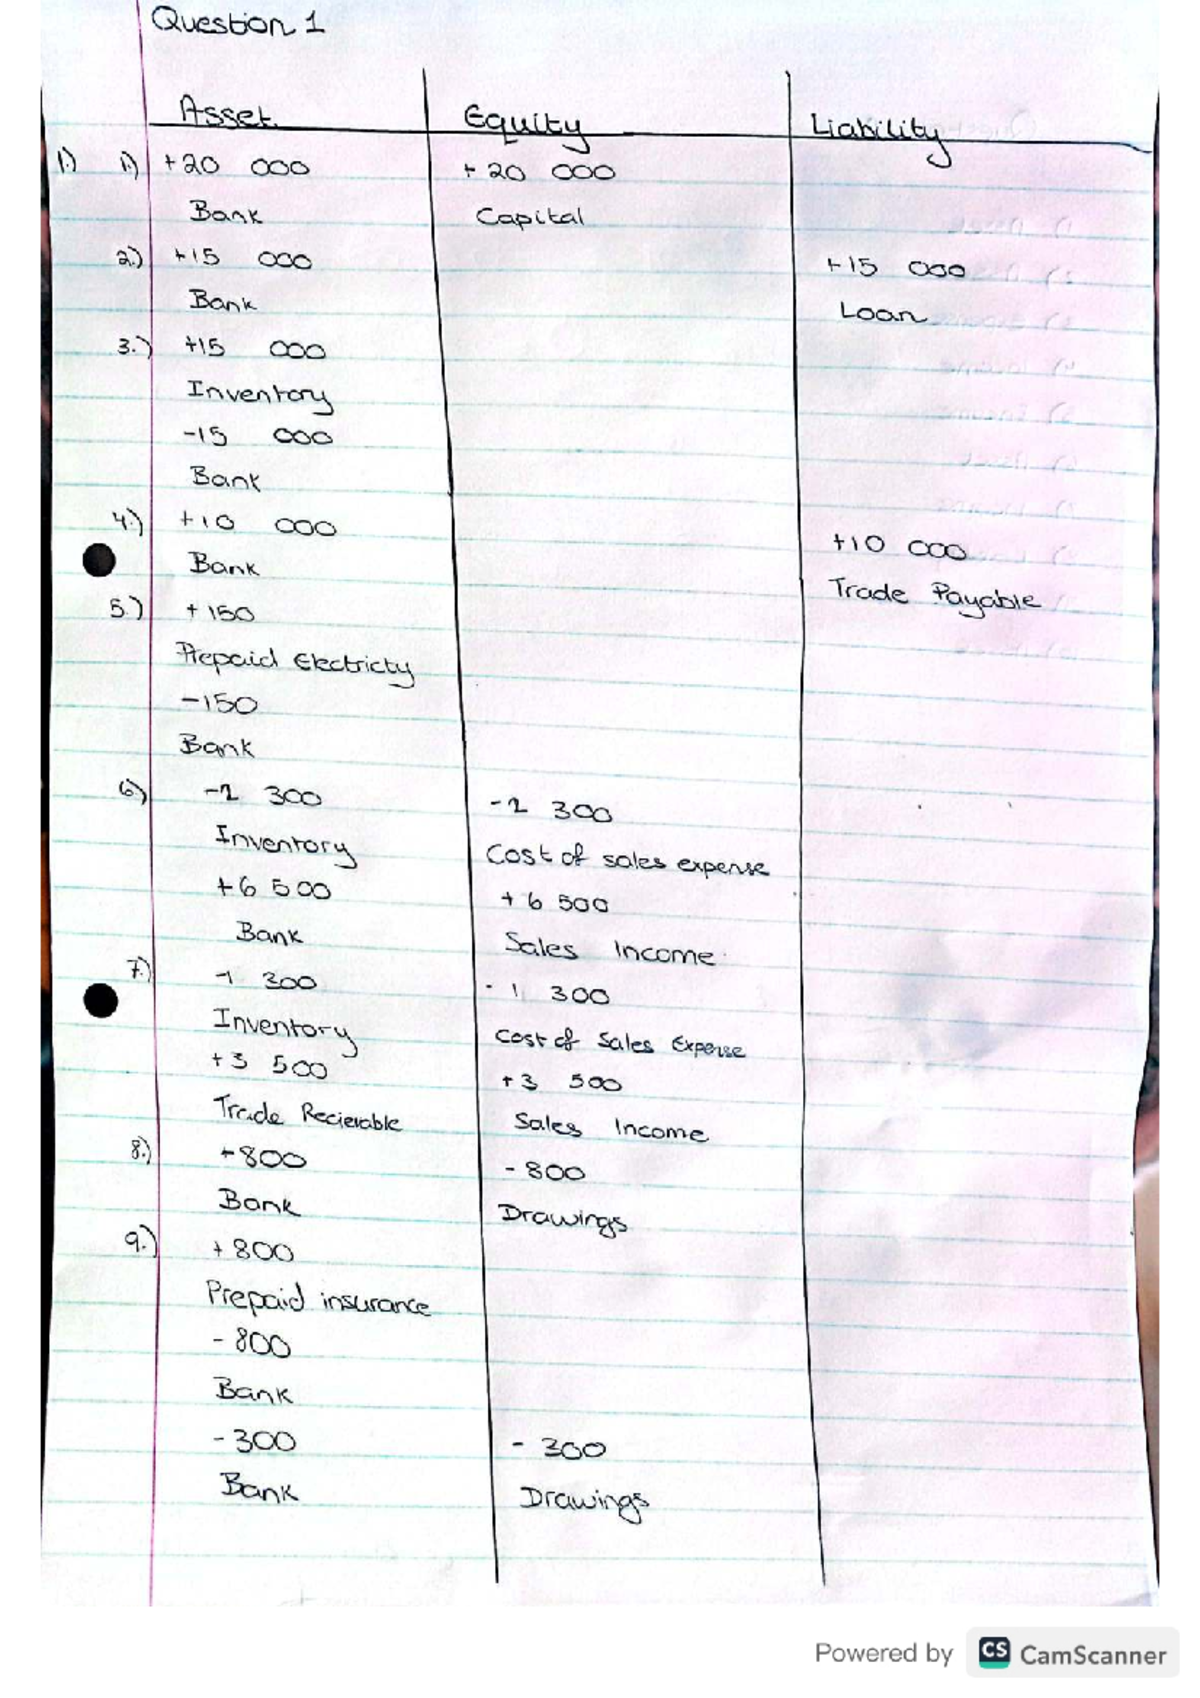 Question 1
Asset Equity Liability
1.) 1.) +20 000 + 20 000
Bank Capital
2.) +15 000 +15 000
Bank Loan
3.) +15 000
Inventory
-15 000
Bank
4.) +10 000 +10 000
Bank Trade Payable
5.) +150
Prepaid Electricty
-150
Bank
6.) 300 300
Inventory Cost of sales expense
+6 500 + 6 500
Bank Sales Income
7.) -1 300 - 1 300
Inventory Cost of Sales Expense
+3 500 +3 500
Trade Recievable Sales Income
8.) +800 - 800
Bank Drawings
9.) +800
Prepaid insurance
- 800
Bank
- 300 - 300
Bank Drawings
Powered by CS CamScanner